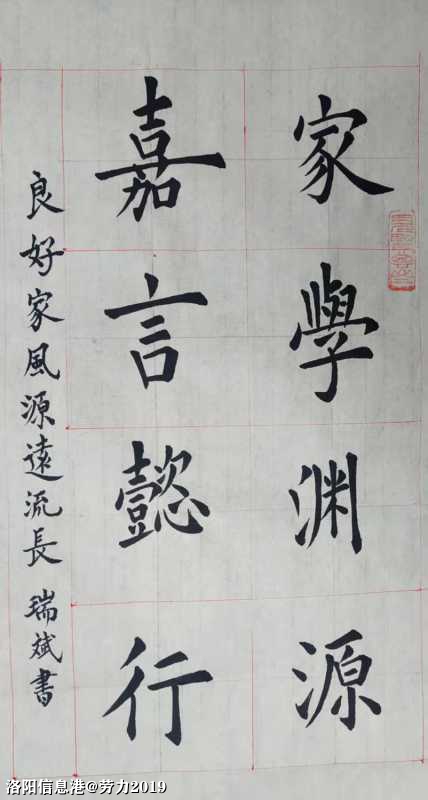 家學渊源
嘉言懿行
良好家風源遠流長 瑞斌書
洛阳信息港@劳力2019